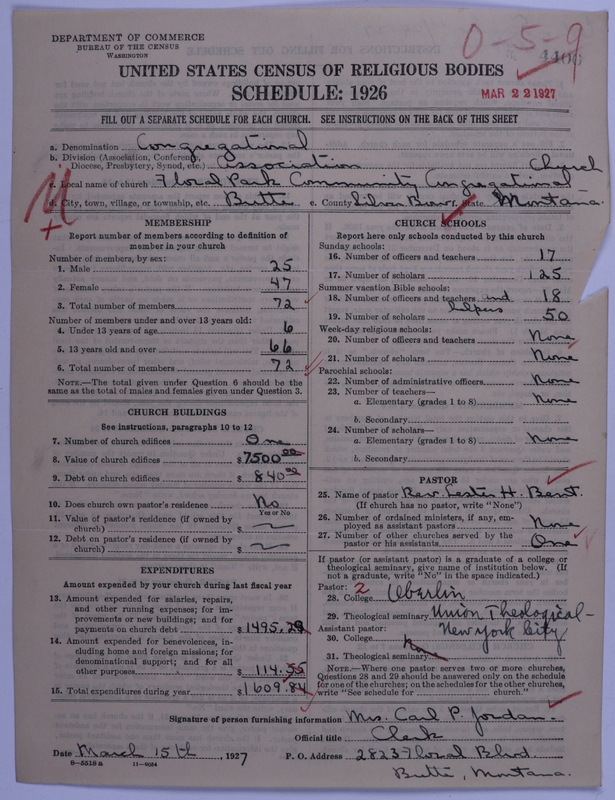 DEPARTMENT OF COMMERCE
BUREAU OF THE CENSUS
WASHINGTON
0-5-9
4406
UNITED STATES CENSUS OF RELIGIOUS BODIES
SCHEDULE: 1926
MAR 22 1927
FILL OUT A SEPARATE SCHEDULE FOR EACH CHURCH. SEE INSTRUCTIONS ON THE BACK OF THIS SHEET
a. Denomination Congregational
b. Division (Association, Conference, Diocese, Presbytery, Synod, etc.) Association
Church
c. Local name of church Floral Park Community Congregational
d. City, town, village, or township, etc. Butte e. County Silver Bow f. State Montana.
MEMBERSHIP
Report number of members according to definition of member in your church
Number of members, by sex:
1. Male 25
2. Female 47
3. Total number of members 72
Number of members under and over 13 years old:
4. Under 13 years of age 6
5. 13 years old and over 66
6. Total number of members 72
NOTE.—The total given under Question 6 should be the same as the total of males and females given under Question 3.
CHURCH BUILDINGS
See instructions, paragraphs 10 to 12
7. Number of church edifices One
8. Value of church edifices $ 7500 00
9. Debt on church edifices $ 840 00
10. Does church own pastor's residence No
Yes or No
11. Value of pastor's residence (if owned by church) $
12. Debt on pastor's residence (if owned by church) $
EXPENDITURES
Amount expended by your church during last fiscal year
13. Amount expended for salaries, repairs, and other running expenses; for improvements or new buildings; and for payments on church debt $ 1495.29
14. Amount expended for benevolences, including home and foreign missions; for denominational support; and for all other purposes $ 114.55
15. Total expenditures during year $ 1609.84
CHURCH SCHOOLS
Report here only schools conducted by this church
Sunday schools:
16. Number of officers and teachers 17
17. Number of scholars 125
Summer vacation Bible schools:
18. Number of officers and teachers and helpers 18
19. Number of scholars 50
Week-day religious schools:
20. Number of officers and teachers None
21. Number of scholars None
Parochial schools:
22. Number of administrative officers None
23. Number of teachers—
a. Elementary (grades 1 to 8) None
b. Secondary
24. Number of scholars—
a. Elementary (grades 1 to 8) None
b. Secondary
PASTOR
25. Name of pastor Rev. Lester H. Bent.
(If church has no pastor, write "None")
26. Number of ordained ministers, if any, employed as assistant pastors None
27. Number of other churches served by the pastor or his assistants One
If pastor (or assistant pastor) is a graduate of a college or theological seminary, give name of institution below. (If not a graduate, write "No" in the space indicated.)
Pastor: 2
28. College Oberlin
29. Theological seminary Union Theological - New York City
Assistant pastor:
30. College None
31. Theological seminary
NOTE.—Where one pastor serves two or more churches, Questions 28 and 29 should be answered only on the schedule for one of the churches; on the schedules for the other churches, write "See schedule for ........ church."
Signature of person furnishing information Mrs. Carl P. Jordan.
Official title Clerk
Date March 15th, 1927 P. O. Address 2823 Floral Blvd.
8-5518 a 11-9054
Butte, Montana.